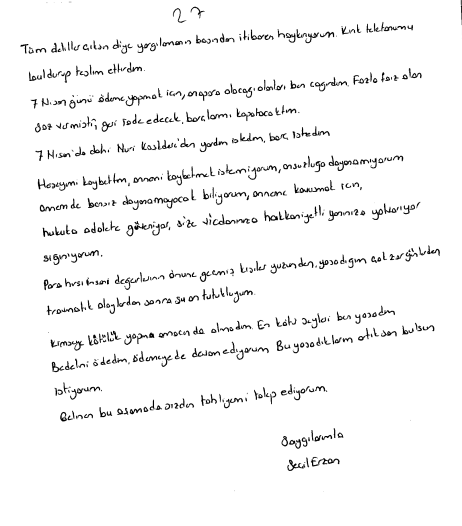 27
Tüm deliller çıksın diye yargılamanın başından itibaren haykırıyorum. Kırık telefonumu
buldurup teslim ettirdim.
7 Nisan günü ödeme yapmak için, anapara alacağı olanları ben çağırdım. Fazla faiz alan
söz vermişti, geri iade edecek, borçlarımı kapatacaktım.
7 Nisan'da dahi Nuri Kasıldere'den yardım istedim, borç istedim
Herşeyimi kaybettim, annemi kaybetmek istemiyorum, onsuzluğa dayanamıyorum
annem de bensiz dayanamayacak biliyorum, anneme kavuşmak için,
hukuka adalete güveniyor, size vicdanınıza hakkaniyetli yanınıza yaklarıyor
sığınıyorum.
Para hırsı insani değerlerinin önüne geçmiş kişiler yüzünden, yaşadığım çok zor günlerden
travmatik olaylardan sonra şu an tutukluyum.
Kimseye kötülük yapma amacında olmadım. En kötü şeyleri ben yaşadım
Bedelini ödedim, ödemeye de devam ediyorum Bu yaşadıklarım artık son bulsun
istiyorum.
Gelinen bu aşamada sizden tahliyemi talep ediyorum.
Saygılarımla
Seçil Erzan